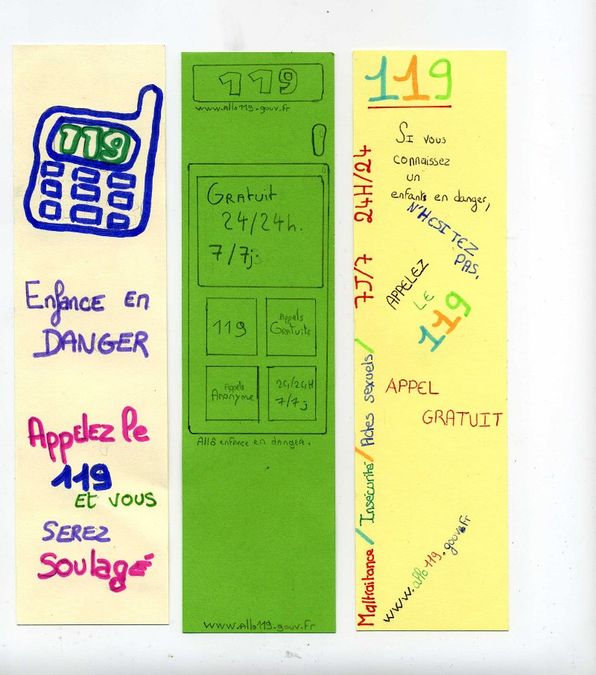 119
Enfance en
DANGER
Appelez le
119
ET VOUS
SEREZ
Soulagé
119
www.allo119.gouv.fr
GRATUIT
24/24h.
7/7j.
119
Appels
Gratuits
Appels
Anonyme
24/24H
7/7j
Allô enfance en danger.
www.allo119.gouv.fr
119
SI vous
connaissez
un
enfants en danger,
N'HESITEZ
PAS,
APPELEZ
LE
119
APPEL
GRATUIT
www.allo119.gouv.fr
Maltraitance / Insécurité / Actes sexuels / 7J/7 24H/24